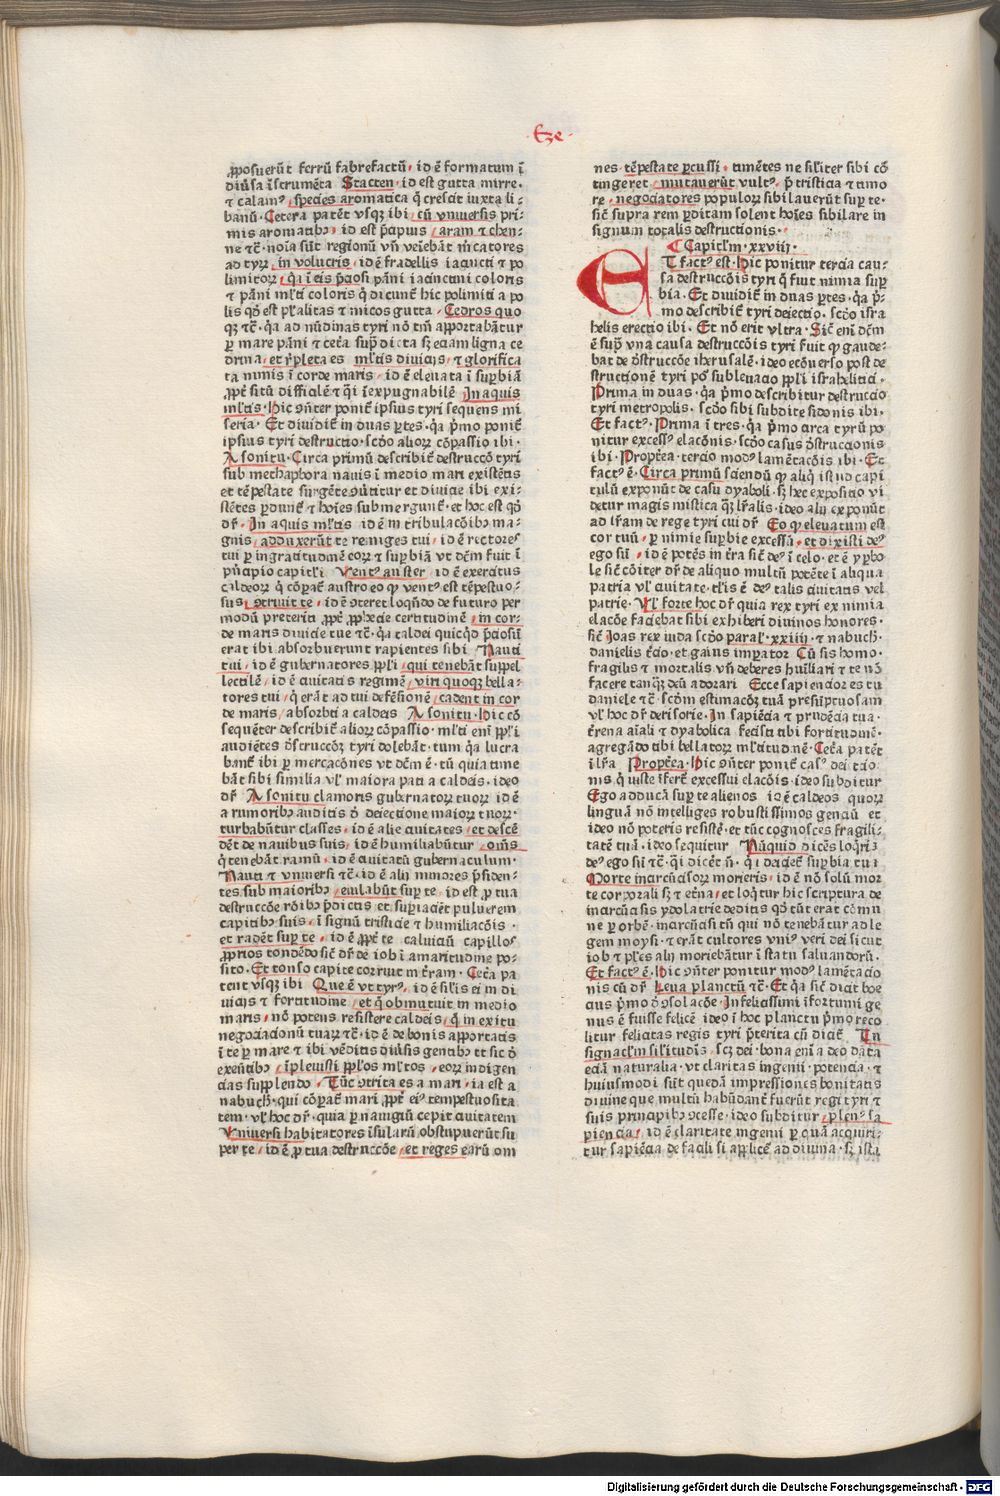 Eze
ꝓposuerūt ferrū fabrefactū id ē formatum ī
diūsa īstrumēta Stacten id est gutta mirre.
⁊ calamꝰ species aromatica q̄ crescit iuxta li-
banū. Cetera patēt vsqꝫ ibi cū vniuersis pri-
mis aromatibꝰ id est p̄cipuis aram ⁊ chen-
ne ⁊c̄. noīa sūt regionū vn̄ veiebāt m̄catores
ad tyrꝝ in volucris id ē fradellis iaqncti ⁊ po
limitorꝝ q̄a ī eis p̄ciosi pāni iacinctini coloris
⁊ pāni ml̄ti coloris q̄ dicunt̄ hic polimiti a po
lis qd̓ est pl̄alitas ⁊ micos gutta. Cedros quo
qꝫ ⁊c̄. q̄a ad nūdinas tyri nō tm̄ apportabātur
ꝑ mare pāni ⁊ cetēa sup̄ dicta sꝫ eciam ligna ce
drina et r̄pleta es ml̄tis diuicijs ⁊ glorifica
ta nimis ī corde maris id ē eleuata ī suꝑbiā
ꝓpt̄ sitū difficilē ⁊ q̄i īexpugnabilē In aquis
ml̄tis. Hic ꝯn̄ter ponit̄ ipsius tyri sequens mi
seria. Et diuidit̄ in duas ꝑtes. q̄a p̄mo ponit̄
ipsius tyri destructio. scd̓o aliorꝝ cōpassio ibi.
A sonitu. Circa primū describit̄ destruccō tyri
sub methaphora nauis ī medio mari existētis
et tēpestate surgēte ꝯūtitur et diuicie ibi exi-
stētes ꝑdunt̄ ⁊ hoīes submergunt̄. et hoc est qd̓
dr̄. In aquis ml̄tis id ē in tribulacōibꝰ ma-
gnis adduxerūt te remiges tui id ē rectores
tui ꝑ ingratitudinē eorꝝ ⁊ suꝑbiā vt dcm̄ fuit ī
pn̄cipio capitl̄i Ventꝰ auster id ē exercitus
caldeorꝝ q̄ cōparat̄ austro eo ꝙ ventꝰ est tēpestuo-
sus ꝯtriuit te id ē ꝯteret loqn̄do de futuro per
modū preteriti ꝓpt̄ ꝓphecie certitudinē in cor-
de maris diuicie tue ⁊c̄. q̄a caldei quicqd̓ p̄ciosū
erat ibi absorbuerunt rapientes sibi Nauti
tui id ē gubernatores ppl̄i qui tenebāt suppel
lectilē id ē ciuitatis regimē viri quoqꝫ bella-
tores tui q̄ erāt ad tui defēsionē cadent in cor
de maris absorbti a caldeis A sonitu. Hic cō
sequēter describit̄ aliorꝝ cōpassio. ml̄ti eni ppl̄i
audiētes d̓struccōꝫ tyri dolebāt. tum q̄a lucra
bant̄ ibi ꝑ mercacōnes vt dcm̄ ē. tū quia time
bāt sibi similia vl̓ maiora pati a caldeis. ideo
dr̄ A sonitu clamoris gubernatorꝝ tuorꝝ id ē
a rumoribꝰ auditis d̓ deiectione maiorꝝ tuorꝝ.
turbabūtur classes id ē alie ciuitates et descē
dēt de nauibus suis id ē humiliabūtur om̄s
q̄ tenebāt ramū id ē ciuitatū gubernaculum.
Nauti ⁊ vniuersi ⁊c̄. id ē alij minores p̄siden-
tes sub maioribꝰ eiulabūt suꝑ te id est ꝑ tua
destruccōe rōibꝰ p̄dictis et suꝑiaciēt puluerem
capitibꝰ suis ī signū tristicie ⁊ humiliacōis.
et radēt suꝑ te id ē ꝓpt̄ te caluiciū capillos
ꝓprios tondēdo sic̄ dr̄ de iob ī amaritudine po-
sito. Et tonso capite corruit in t̄ram. Cetēa pa
tent vsqꝫ ibi Que ē vt tyrꝰ id ē sil̄is ei in di
uicijs ⁊ fortitudine et q̄ obmutuit in medio
maris nō potens resistere caldeis q̄ in exitu
negociacionū tuarꝝ ⁊c̄. id ē de bonis apportatis
ī te ꝑ mare ⁊ ibi vēditis diūsis gentibꝰ et sic d̓
exeūtibꝰ īpleuisti ppl̄os ml̄tos eorꝝ indigen
cias supplendo Tūc ꝯtrita es a mari id est a
nabuch̄. qui cōparat̄ mari ꝓpt̄ eiꝰ tempestuosita
tem. vl̓ hoc dr̄. quia ꝑ nauigiū cepit ciuitatem
Vniuersi habitatores īsularū obstupuerūt su
per te id ē ꝑ tua destruccōe et reges earū om
nes tēpestate ꝑcussi timētes ne sil̄iter sibi cō
tingeret mutauerūt vultꝰ p̄ tristicia ⁊ timo
re negociatores populorꝝ sibilauerūt suꝑ te.
sic̄ supra rem ꝑditam solent hoīes sibilare in
signum totalis destructionis.
Capitl̄m xxviij.
ET factꝰ est. Hic ponitur tercia cau-
sa destruccōis tyri q̄ fuit nimia suꝑ
bia. Et diuidit̄ in duas ꝑtes. q̄a p̄-
mo describit̄ tyri deiectio. scd̓o isra
helis erectio ibi. Et nō erit vltra. Sic̄ eni dcm̄
ē sup̄ vna causa destruccōis tyri fuit ꝙ gaude-
bat de d̓struccōe iherusalē. ideo ecōuerso post de
structionē tyri poꝰ subleuacio ppl̄i israhelitici.
Prima in duas. q̄a p̄mo describitur destruccio
tyri metropolis. scd̓o sibi subdite sidonis ibi.
Et factꝰ. Prima ī tres. q̄a p̄mo circa tyrū po
nitur excessꝰ elacōnis. scd̓o casus d̓struccionis
ibi. Proptēa. tercio modꝰ lamētacōis ibi. Et
factꝰ ē. Circa primū sciendū ꝙ aliq̄ istud capi
tulū exponūt de casu dyaboli. sꝫ hec expositio vi
detur magis mistica q̄ꝫ lr̄alis. ideo alij exponūt
ad lr̄am de rege tyri cui dr̄ Eo ꝙ eleuatum est
cor tuū ꝑ nimie suꝑbie excessū et dixisti deꝰ
ego sū id ē potēs in t̄ra sic̄ deꝰ ī celo. et ē yꝑbo
le sic̄ cōiter dr̄ de aliquo multū potēte ī aliqua
patria vl̓ ciuitate. tl̄is ē deꝰ talis ciuitatis vel
patrie. Vl̓ forte hoc dr̄ quia rex tyri ex nimia
elacōe faciebat sibi exhiberi diuinos honores.
sic̄ Joas rex iuda scd̓o paral̓. xxiiij ⁊ nabuch̄.
danielis t̄cio. et gaius imꝑator Cū sis homo.
fragilis ⁊ mortalis vn̄ deberes huīliari ⁊ te nō
facere tanqꝫ deū adorari Ecce sapiencior es tu
daniele ⁊c̄. scd̓m estimacōꝫ tuā presūptuosam
vl̓ hoc dr̄ derisorie. In sapiēcia ⁊ prudēcia tua.
t̄rena aīali ⁊ dyabolica fecisti tibi fortitudinē.
agregādo tibi bellatorꝝ ml̄titudinē. Cetēa patēt
ī lr̄a Proptēa. Hic ꝯn̄ter ponit̄ casꝰ deiectio
nis q̄ iuste īfert̄ excessui elacōis. ideo subditur
Ego adducā suꝑ te alienos id ē caldeos quorꝝ
linguā nō intelliges robustissimos genciū et
ideo nō poteris resistē. et tūc cognosces fragili-
tatē tuā. ideo sequitur Nūquid dicēs loq̄ris
deꝰ ego sū ⁊c̄. q̄i dicēt n̄. q̄i deiciet̄ suꝑbia tui
Morte incircūcisorꝝ morieris id ē nō solū mor
te corporali sꝫ ⁊ etēna. et loqt̄ur hic scriptura de
incircūcisis ydolatrie deditis qd̓ tūc erat cōmu
ne ꝑ orbē. incircūcisi tū qui nō tenebātur ad le
gem moysi ⁊ erāt cultores vniꝰ veri dei sicut
iob ⁊ pl̄es alij moriebātur ī statu saluandorū.
Et factꝰ ē. Hic ꝯn̄ter ponitur modꝰ lamētacio
nis cū dr̄ Leua planctū ⁊c̄. Et q̄a sic̄ dicit boe
cius p̄mo d̓ ꝯsolacōe. Infelicissimi īfortunij ge
nus ē fuisse felicē ideo ī hoc planctu p̄mo reco
litur felicitas regis tyri p̄terita cū dicit̄ Tu
signaclm̄ sil̄itudīs scꝫ dei. bona eni a deo data
eciā naturalia. vt claritas ingenij. potencia. ⁊
huiusmodi sūt quedā impressiones bonitatis
diuine que multū habūdant̄ fuerūt regi tyri ⁊
suis principibꝰ ꝯcesse. ideo subditur plenꝰ sa
piencia id ē claritate ingenij ꝑ quā acquiri-
tur sapiēcia de facili si applicet̄ ad diuina. sꝫ isti
Digitalisierung gefördert durch die Deutsche Forschungsgemeinschaft - DFG